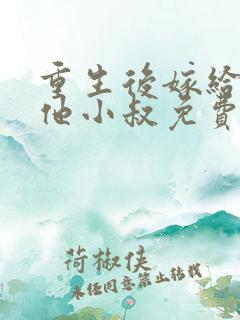 重生後嫁給
他小叔免費
荷椒俠
未經同意禁止轉載